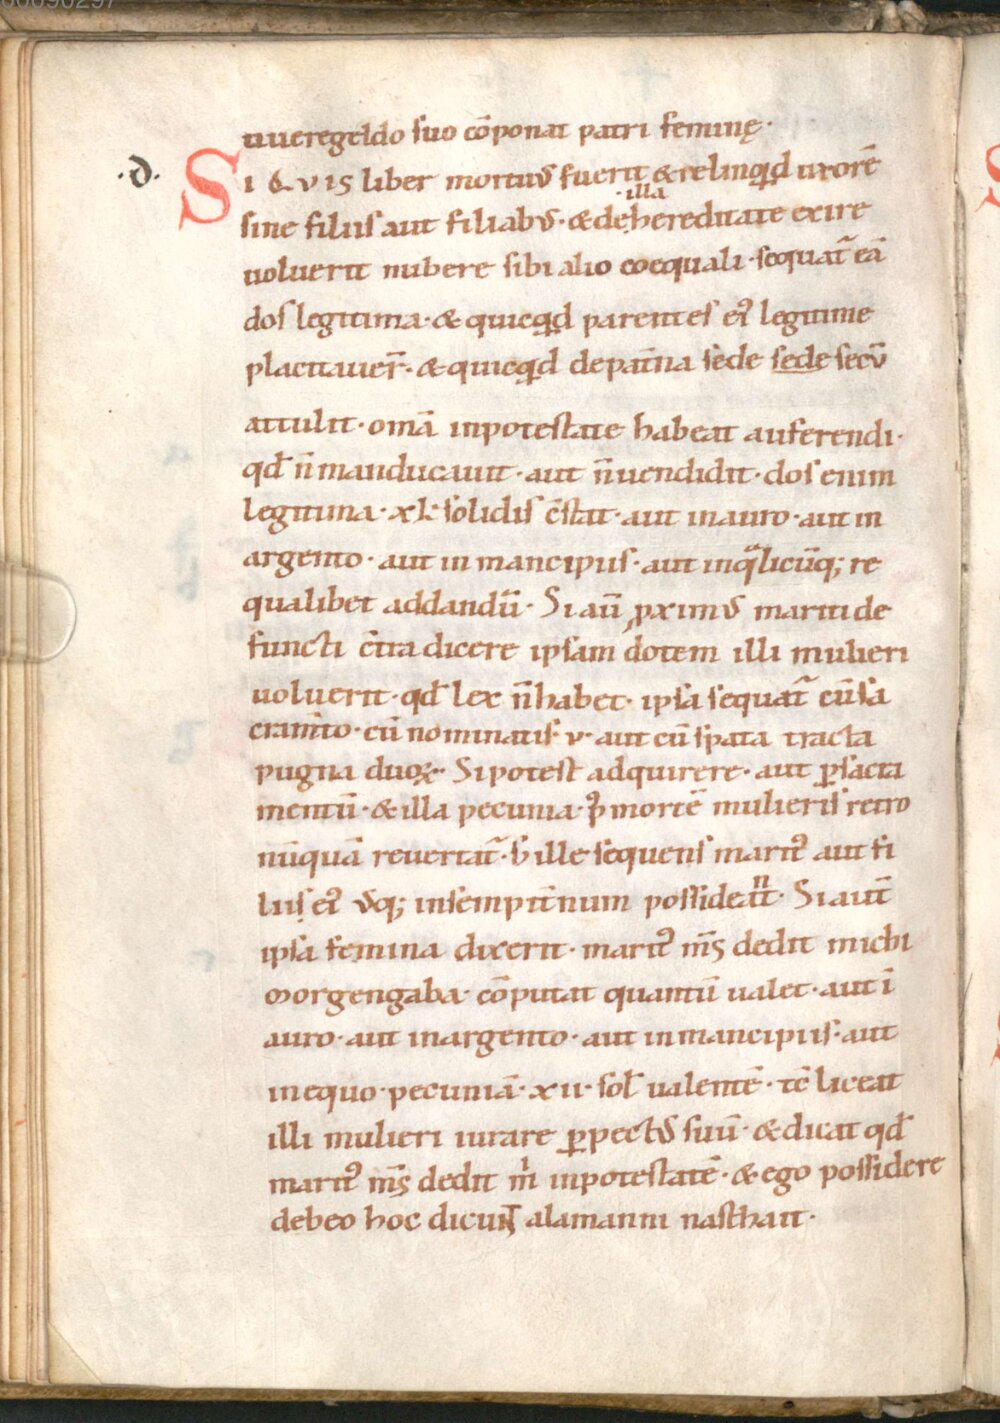 uueregeldo suo cōponat patri feminę·
·d· Si Qvis liber mortuꝰ fuerit & relinqͥd uxorē
sine filiis aut filiabꝰ· & de illa hereditate exire
uoluerit nubere sibi alio coequali· sequat᷑ eā
dos legitima· & quicqͥd parentes ei᷒ legitime
placitauer̄· & quicqͥd depat̄na sede sede secū
attulit· omā inpotestate habeat auferendi·
qđ n̄ manducauit· aut n̄ uendidit· dos enim
legitima· xl· solidis c̄stat· aut inauro· aut in
argento· aut in mancipiis· aut inqᷓlicūq; re
qualibet addandū· Si aū ꝓximꝰ mariti de
functi c̄tra dicere ipsam dotem illi mulieri
uoluerit· qđ lex n̄ habet· ipsa sequat᷑ cū sa
cram̄to· cū nominatis· v· aut cū spata tracta
pugna duoꝝ· Si potest adquirere· aut ꝑ sacra
mentū· & illa pecunia· p᷒ mortē mulieris retro
nūquā reuertat᷑· s; ille sequens marit᷒ aut fi
lius ei᷒ ꝰq; insempit̄num possideant· Si aut̄
ipsa femina dixerit· marit᷒ m̄s dedit michi
morgengaba· cōputat quantū ualet· aut ī
auro· aut inargento· aut in mancipiis· aut
in equo· pecuniā· xii· sol̄ ualentē· tc̄ liceat
illi mulieri iurare ꝑ pectꝰ suū· & dicat qđ
marit᷒ m̄s dedit m̍ inpotestatē· & ego possidere
debeo hoc dicunt alamanni nasthait·